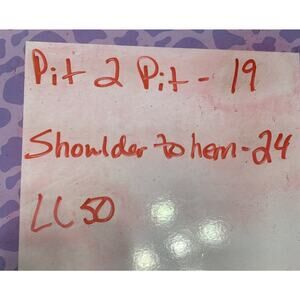 Pit 2 Pit - 19
Shoulder to hem - 24
LL 50